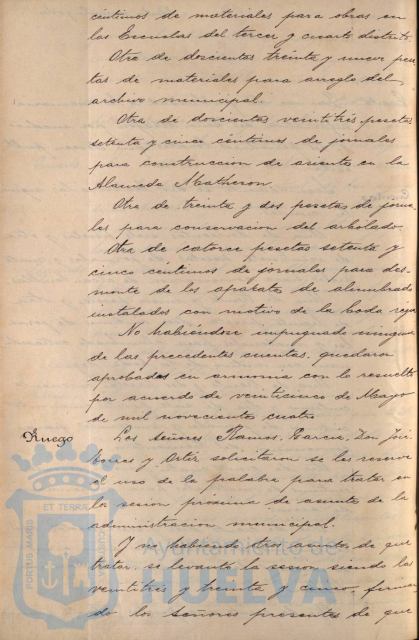 céntimos de materiales para obras en
las Escuelas del tercer y cuarto distrito.
Otra de doscientas treinta y nueve pese
tas de materiales para arreglo del
archivo municipal.
Otra de doscientas veintitrés pesetas
setenta y cinco céntimos de jornales
para construccion de asientos en la
Alameda Matheron.
Otra de treinta y dos pesetas de jorna
les para conservacion del arbolado.
Otra de catorce pesetas setenta y
cinco céntimos de jornales para des-
monte de los aparatos de alumbrado
instalados con motivo de la boda regia
No habiéndose impugnado ninguna
de las precedentes cuentas, quedaron
aprobadas en armonia con lo resuelto
por acuerdo de veinticinco de Mayo
de mil novecientos cuatro.
Ruego
Los señores Ramos, García, Don
y Ortiz solicitaron se les reserve
el uso de la palabra para tratar en
la sesion próxima de asuntos de la
administracion municipal.
Y no habiendo otro asunto de que
tratar se levantó la sesion siendo las
veintitrés y treinta y cinco, firman
do los señores presentes de que
PORTUS MARIS
ET TERRAE
CUSTODIA
Ayuntamiento de
HUELVA